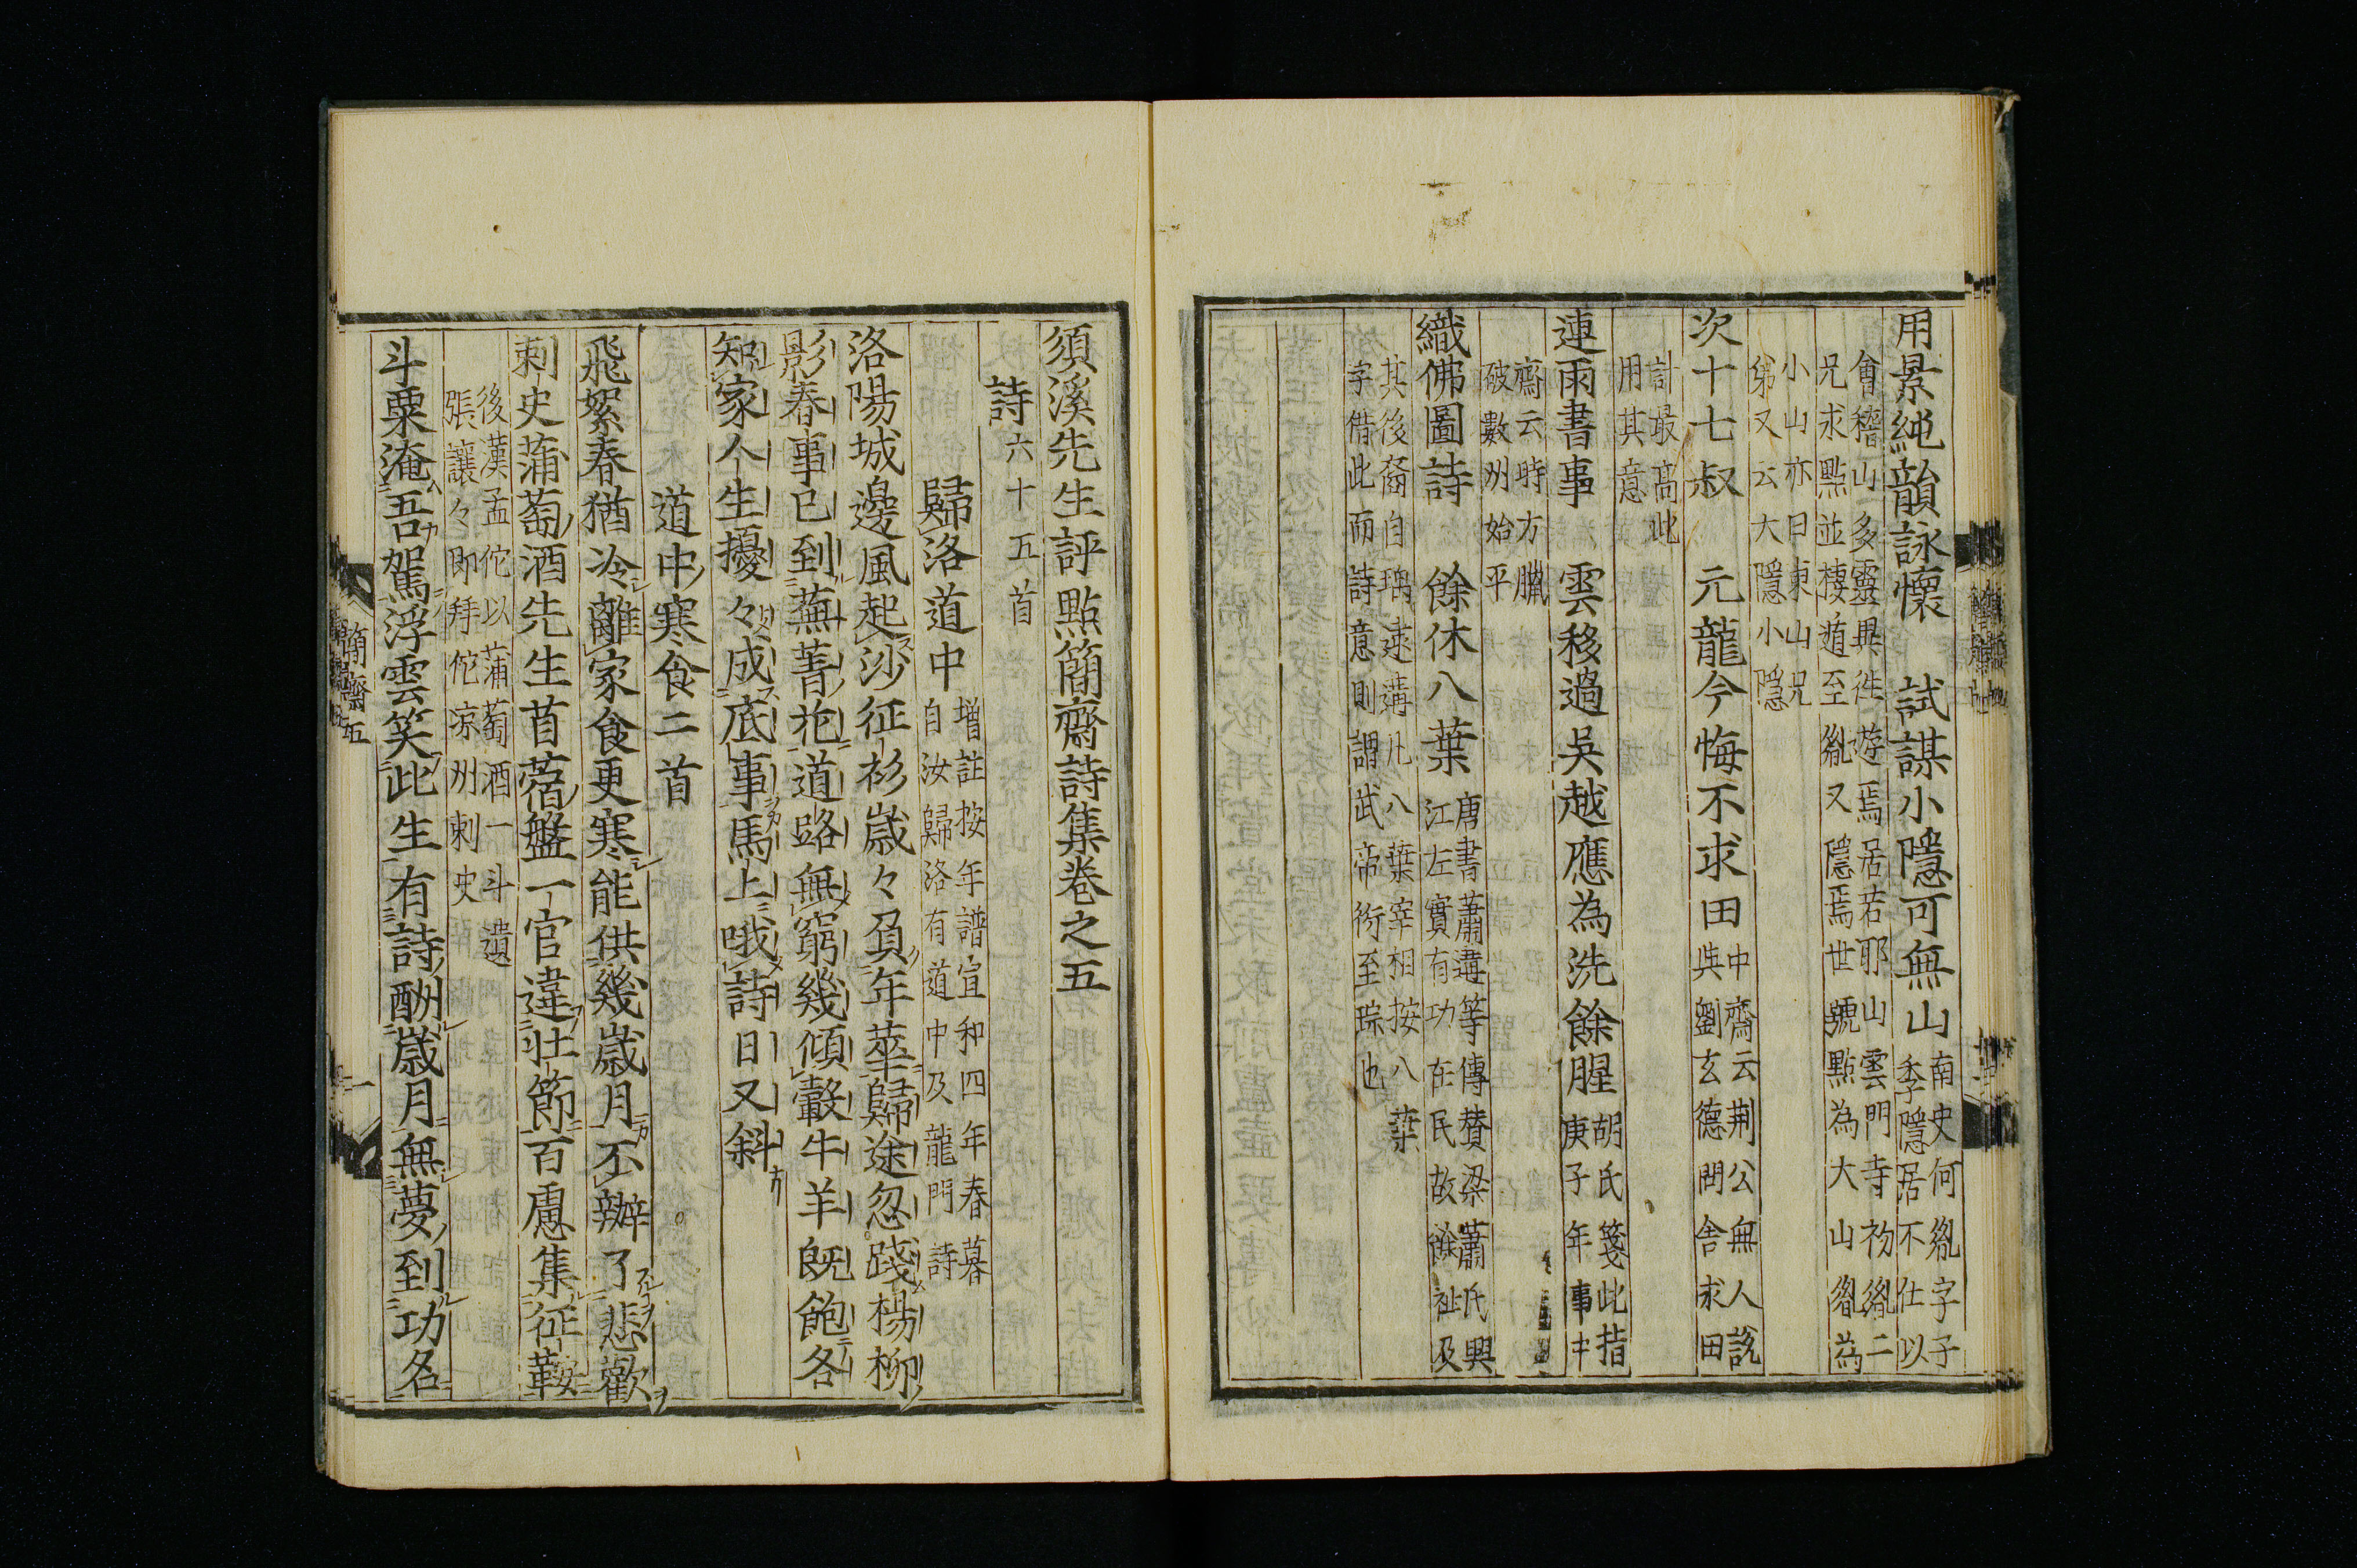 用景純韻詠懷　試謀小隱可無山南史何胤字子
季隱居不仕以
會稽山多靈異徃遊焉居若耶山雲門寺初胤二
兄求點並棲遁至胤又隱焉世號點為大山胤為
小山亦曰東山兄
弟又云大隱小隱
次十七叔　元龍今悔不求田中齋云荆公無人說
與劉玄德問舍求田
計最高此
用其意
連雨書事　雲移過吳越應為洗餘腥胡氏箋此指
庚子年事中
齋云時方臘
破數州始平
織佛圖詩　餘休八葉唐書蕭遘等傳賛梁蕭氏興
江左實有功在民故餘祉及
其後裔自瑀逮遘凡八葉宰相按八葉
字借此而詩意則謂武帝衍至琮也
須溪先生評點簡齋詩集卷之五
詩六十五首
歸洛道中增註按年譜宣和四年春暮
自汝歸洛有道中及龍門詩
洛陽城邊風起沙征衫歲々負年華歸途忽踐楊柳
影春事已到蕪菁花道路無窮幾傾轂牛羊既飽各
知家人生擾々成底事馬上哦詩日又斜
道中寒食二首
飛絮春猶冷離家食更寒能供幾歲月不辦了悲歡
刺史蒲萄酒先生苜蓿盤一官違壯節百慮集征鞍
後漢孟佗以蒲萄酒一斗遺
張讓々即拜佗凉州刺史
斗粟淹吾駕浮雲笑此生有詩酬歲月無夢到功名
簡齋五
一